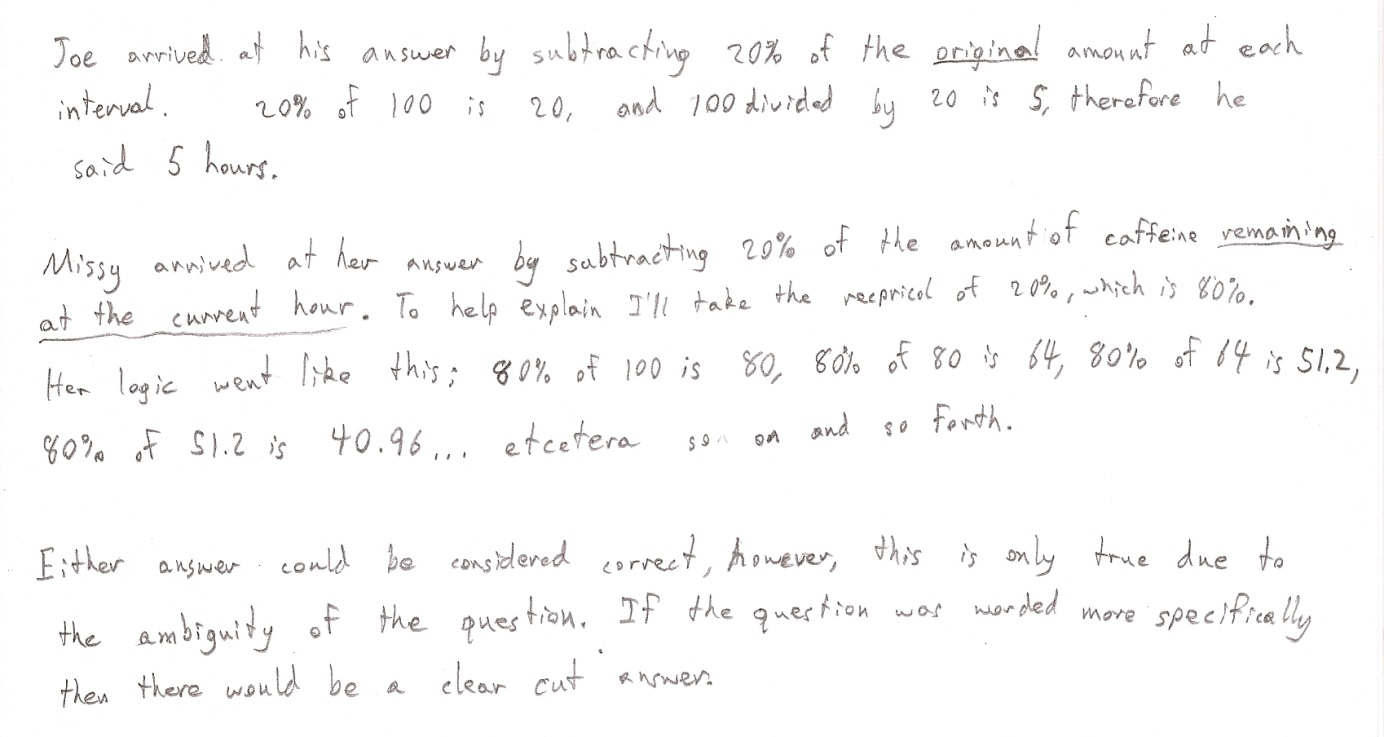 Joe arrived at his answer by subtracting 20% of the original amount at each
interval. 20% of 100 is 20, and 100 divided by 20 is 5, therefore he
said 5 hours.
Missy arrived at her answer by subtracting 20% of the amount of caffeine remaining
at the current hour. To help explain I'll take the recpricol of 20%, which is 80%.
Her logic went like this; 80% of 100 is 80, 80% of 80 is 64, 80% of 64 is 51.2,
80% of 51.2 is 40.96... etcetera so on and so forth.
Either answer could be considered correct, however, this is only true due to
the ambiguity of the question. If the question was worded more specifically
then there would be a clear cut answer.